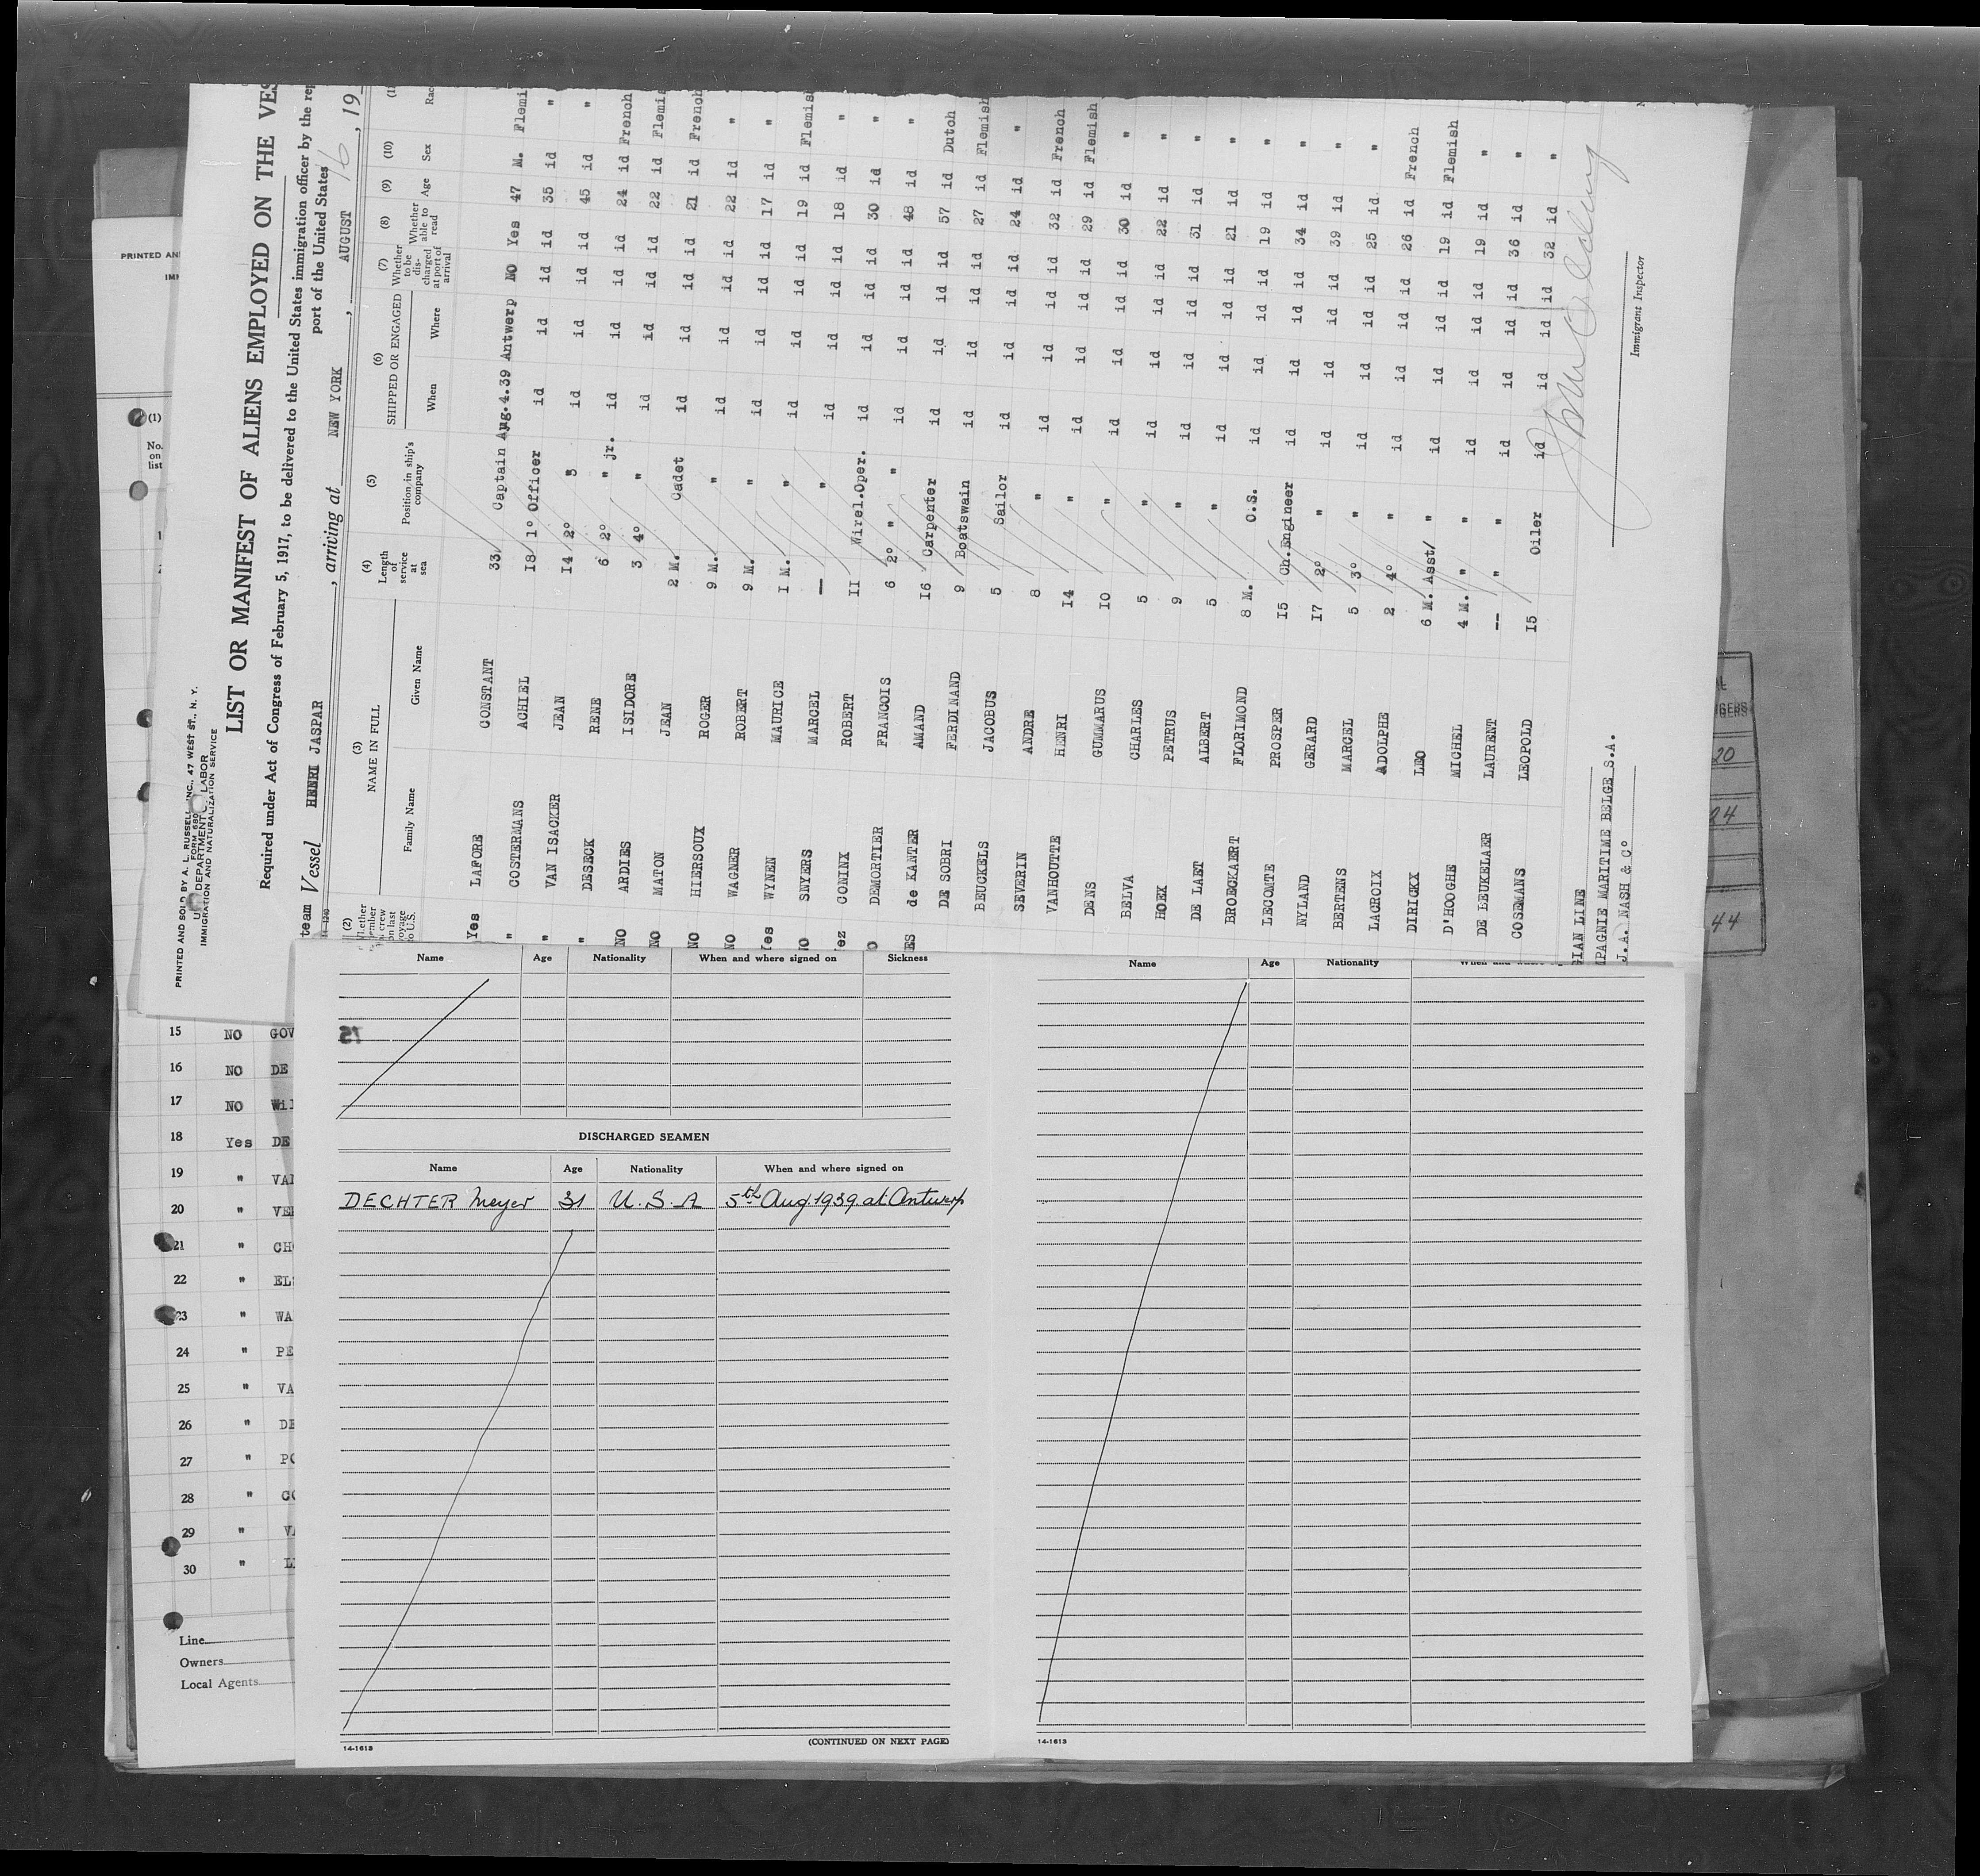 PRINTED AND SOLD BY A. L. RUSSELL, INC., 47 WEST ST., N. Y.
FORM 680
DEPARTMENT LABOR
IMMIGRATION AND NATURALIZATION SERVICE
LIST OR MANIFEST OF ALIENS EMPLOYED ON THE VES
Required under Act of Congress of February 5, 1917, to be delivered to the United States immigration officer by the rep
port of the United States
team Vessel HENRI JASPAR, arriving at NEW YORK, AUGUST 16, 19
(2) (3) (4) (5) (6) (7) (8) (9) (10) (11
NAME IN FULL Length of service at sea Position in ship's company SHIPPED OR ENGAGED Whether to be discharged at port of arrival Whether able to read Age Sex Rac
Family Name Given Name When Where
Yes LAFORE CONSTANT 33 Captain Aug.4.39 Antwerp NO Yes 47 M. Flemi
" COSTERMANS ACHIEL 18 1° Officer id id id id 35 id "
" VAN ISACKER JEAN 14 2° " id id id id 45 id "
" DESECK RENE 6 2° " jr. id id id id 24 id French
NO ARDIES ISIDORE 3 4° " id id id id 22 id Flemis
NO MATON JEAN 2 M. Cadet id id id id 21 id French
NO HIERSOUX ROGER 9 M. " id id id id 22 id "
NO WAGNER ROBERT 9 M. " id id id id 17 id "
Yes WYNEN MAURICE 1 M. " id id id id 19 id Flemish
NO SNYERS MARCEL -- " id id id id 18 id "
ez CONINX ROBERT 11 Wirel.Oper. id id id id 30 id "
O DEMORTIER FRANCOIS 6 2° " " id id id id 48 id "
ES de KANTER AMAND 16 Carpenter id id id id 57 id Dutch
DE SOBRI FERDINAND 9 Boatswain id id id id 27 id Flemish
BEUCKELS JACOBUS 5 Sailor id id id id 24 id "
SEVERIN ANDRE 8 " id id id id 32 id French
VANHOUTTE HENRI 14 " id id id id 29 id Flemish
DENS GUMMARUS 10 " id id id id 30 id "
BELVA CHARLES 5 " id id id id 22 id "
HOEX PETRUS 9 " id id id id 31 id "
DE LAET ALBERT 5 " id id id id 21 id "
BROECKAERT FLORIMOND 8 M. O.S. id id id id 19 id "
LECOMTE PROSPER 15 Ch.Engineer id id id id 34 id "
NYLAND GERARD 17 2° " id id id id 39 id "
BERTENS MARCEL 5 3° " id id id id 25 id "
LACROIX ADOLPHE 2 4° " id id id id 26 id French
DIRICKX LEO 6 M. Asst/ " id id id id 19 id Flemish
D'HOOGHE MICHEL 4 M. " " id id id id 19 id "
DE LEUKELAER LAURENT -- " " id id id id 36 id "
COSEMANS LEOPOLD 15 Oiler id id id id 32 id "
GIAN LINE
MPAGNIE MARITIME BELGE S.A.
J.A. NASH & C°
Immigrant Inspector
PRINTED AN
IM
(1)
No. on list
1
15 NO GOV
16 NO DE
17 NO Wil
18 Yes DE
19 " VAN
20 " VE
21 " CH
22 " EL
23 " WA
24 " PE
25 " VA
26 " DE
27 " PO
28 " CO
29 " VA
30 " LI
Line
Owners
Local Agents
20
24
44
Name Age Nationality When and where signed on Sickness
75
DISCHARGED SEAMEN
Name Age Nationality When and where signed on
DECHTER Meyer 31 U.S.A 5th Aug. 1939. at Antwerp
14-1613 (CONTINUED ON NEXT PAGE)
Name Age Nationality When and where
14-1613